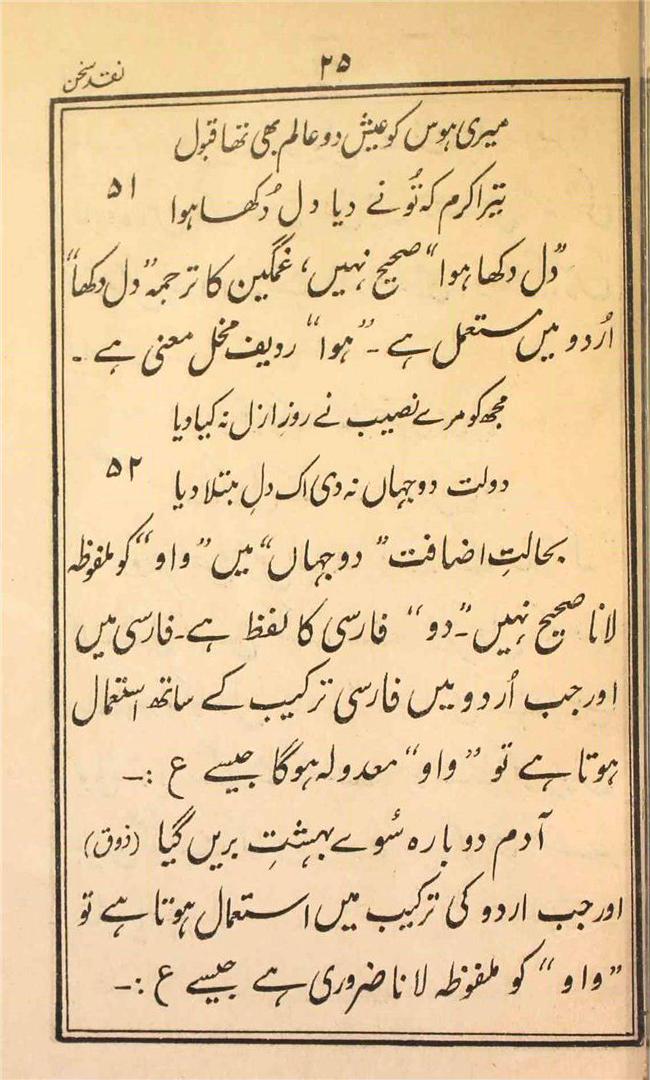 ۲۵
نقد سخن
میری ہوس کو عیش دو عالم بھی تھا قبول
تیرا کرم کہ تُو نے دیا دل دُکھا ہوا ۵۱
”دل دکھا ہوا“ صحیح نہیں، غمگین کا ترجمہ ”دل دکھا“
اُردو میں مستعمل ہے۔ ”ہوا“ ردیف مخل معنی ہے۔
مجھ کو مرے نصیب نے روزِ ازل نہ کیا دیا
دولت دو جہاں نہ دی اک دلِ مبتلا دیا ۵۲
بحالتِ اضافت ”دو جہاں“ میں ”واو“ کو ملفوظہ
لانا صحیح نہیں۔ ”دو“ فارسی کا لفظ ہے۔ فارسی میں
اور جب اُردو میں فارسی ترکیب کے ساتھ استعمال
ہوتا ہے تو ”واو“ معدولہ ہوگا جیسے ع :۔
آدم دوبارہ سُوے بہشتِ بریں گیا (ذوق)
اور جب اردو کی ترکیب میں استعمال ہوتا ہے تو
”واو“ کو ملفوظہ لانا ضروری ہے جیسے ع :۔